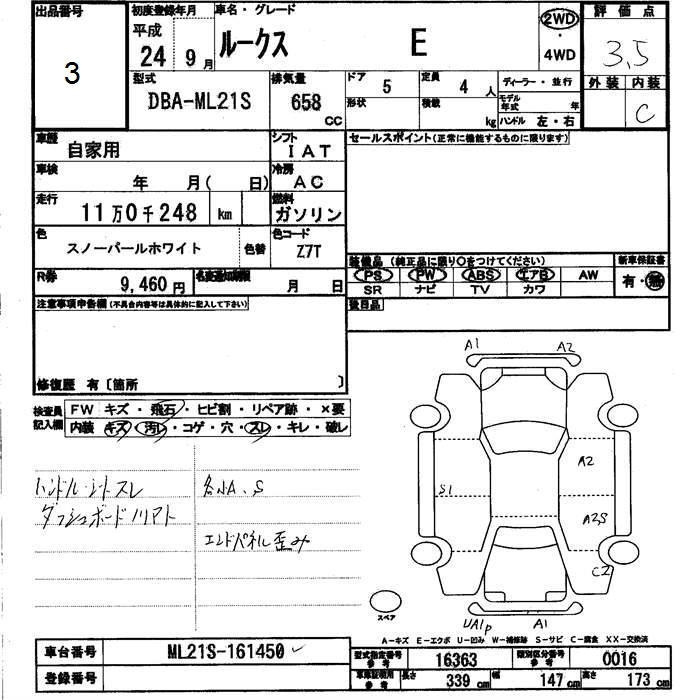 出品番号
3
初度登録年月
平成
24 9月
車名・グレード
ルークス E
2WD
・
4WD
評価点
3.5
外装 内装
C
型式
DBA-ML21S
排気量
658
CC
ドア
5
形状
定員
4人
積載
kg
ディーラー・並行
モデル年式 年
ハンドル 左・右
車歴
自家用
シフト
IAT
セールスポイント(正常に機能するものに限ります)
車検
年 月( 日)
冷房
AC
走行
11万0千248 km
燃料
ガソリン
色
スノーパールホワイト
色替
色コード
Z7T
装備品 (純正品に限り○をつけてください)
PS PW ABS エアB AW
SR ナビ TV カワ
新車保証書
有・無
R券
9,460円
名変通知期限
月 日
後日品
注意事項申告欄(不具合内容等は具体的に記入して下さい)
修復歴 有〔箇所 〕
検査員記入欄
FW キズ・飛石・ヒビ割・リペア跡・×要
内装 キズ・汚レ・コゲ・穴・スレ・キレ・破レ
ハンドル・シートスレ
ダッシュボードノリアト
各小A、S
エンドパネル歪み
A1 A2
A2
S1
A2S
C2
UA1P A1
スペア
A-キズ E-エクボ U-凹み W-補修跡 S-サビ C-腐食 XX-交換済
車台番号 ML21S-161450
登録番号
型式指定番号 参考 16363
類別区分番号 参考 0016
車庫証明用 参考 長さ 339cm 幅 147cm 高さ 173cm